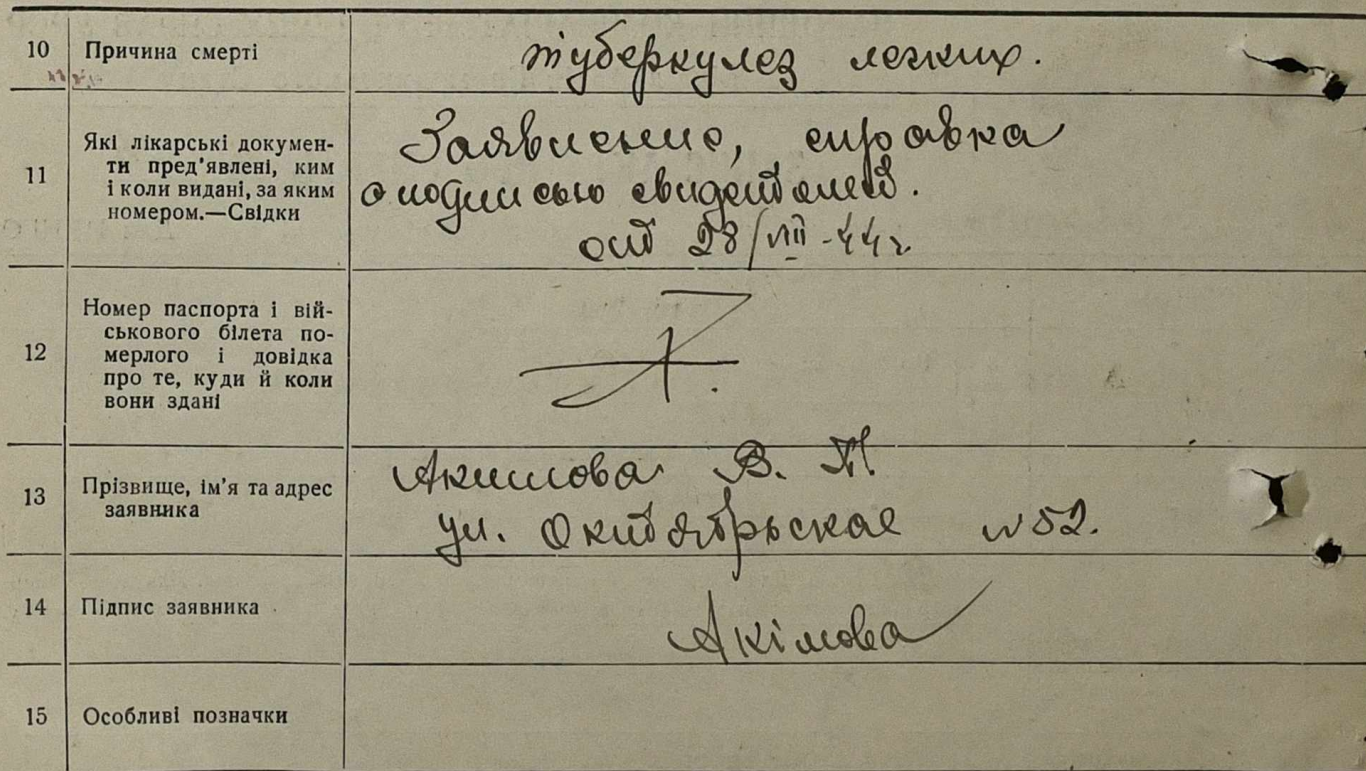 10 Причина смерті туберкулез легких.
11 Які лікарські докумен-
ти пред'явлені, ким
і коли видані, за яким
номером.—Свідки
Заявление, справка
о подписью свидетелей.
от 28/VIII-44г.
12 Номер паспорта і вій-
ськового білета по-
мерлого і довідка
про те, куди й коли
вони здані
13 Прізвище, ім'я та адрес
заявника
Акимова В. П
ул. Октябрьская №52.
14 Підпис заявника Акімова
15 Особливі позначки